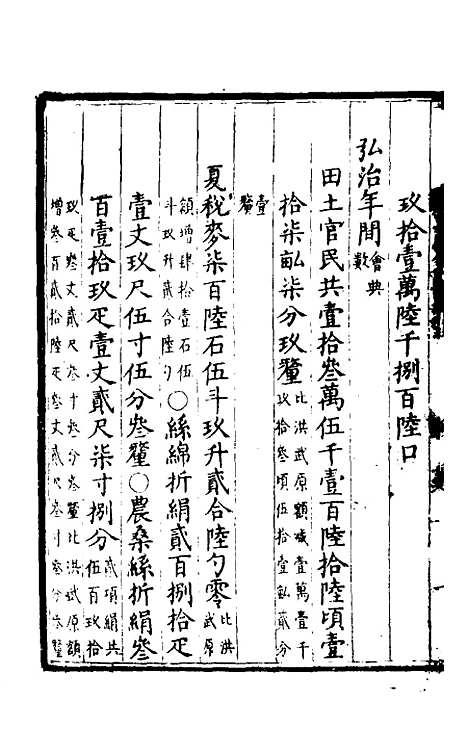 玖拾壹萬陸千捌百陸口
弘治年間會典數
田土官民共壹拾叄萬伍千壹百陸拾陸頃壹
拾柒畝柒分玖釐比洪武原額減壹萬壹千玖拾叄頃伍拾壹畝貳分
壹釐
夏稅麥柒百陸石伍斗玖升貳合陸勺零比洪武原
額增肆拾壹石伍斗玖升貳合陸勺○絲綿折絹貳百捌拾疋
壹丈玖尺伍寸伍分叄釐○農桑絲折絹叄
百壹拾玖疋壹丈貳尺柒寸捌分貳項絹共伍百玖拾
玖疋叄丈貳尺叄寸叄釐比洪武原額增叄百貳拾陸疋叄丈貳尺叄寸叄分叄釐